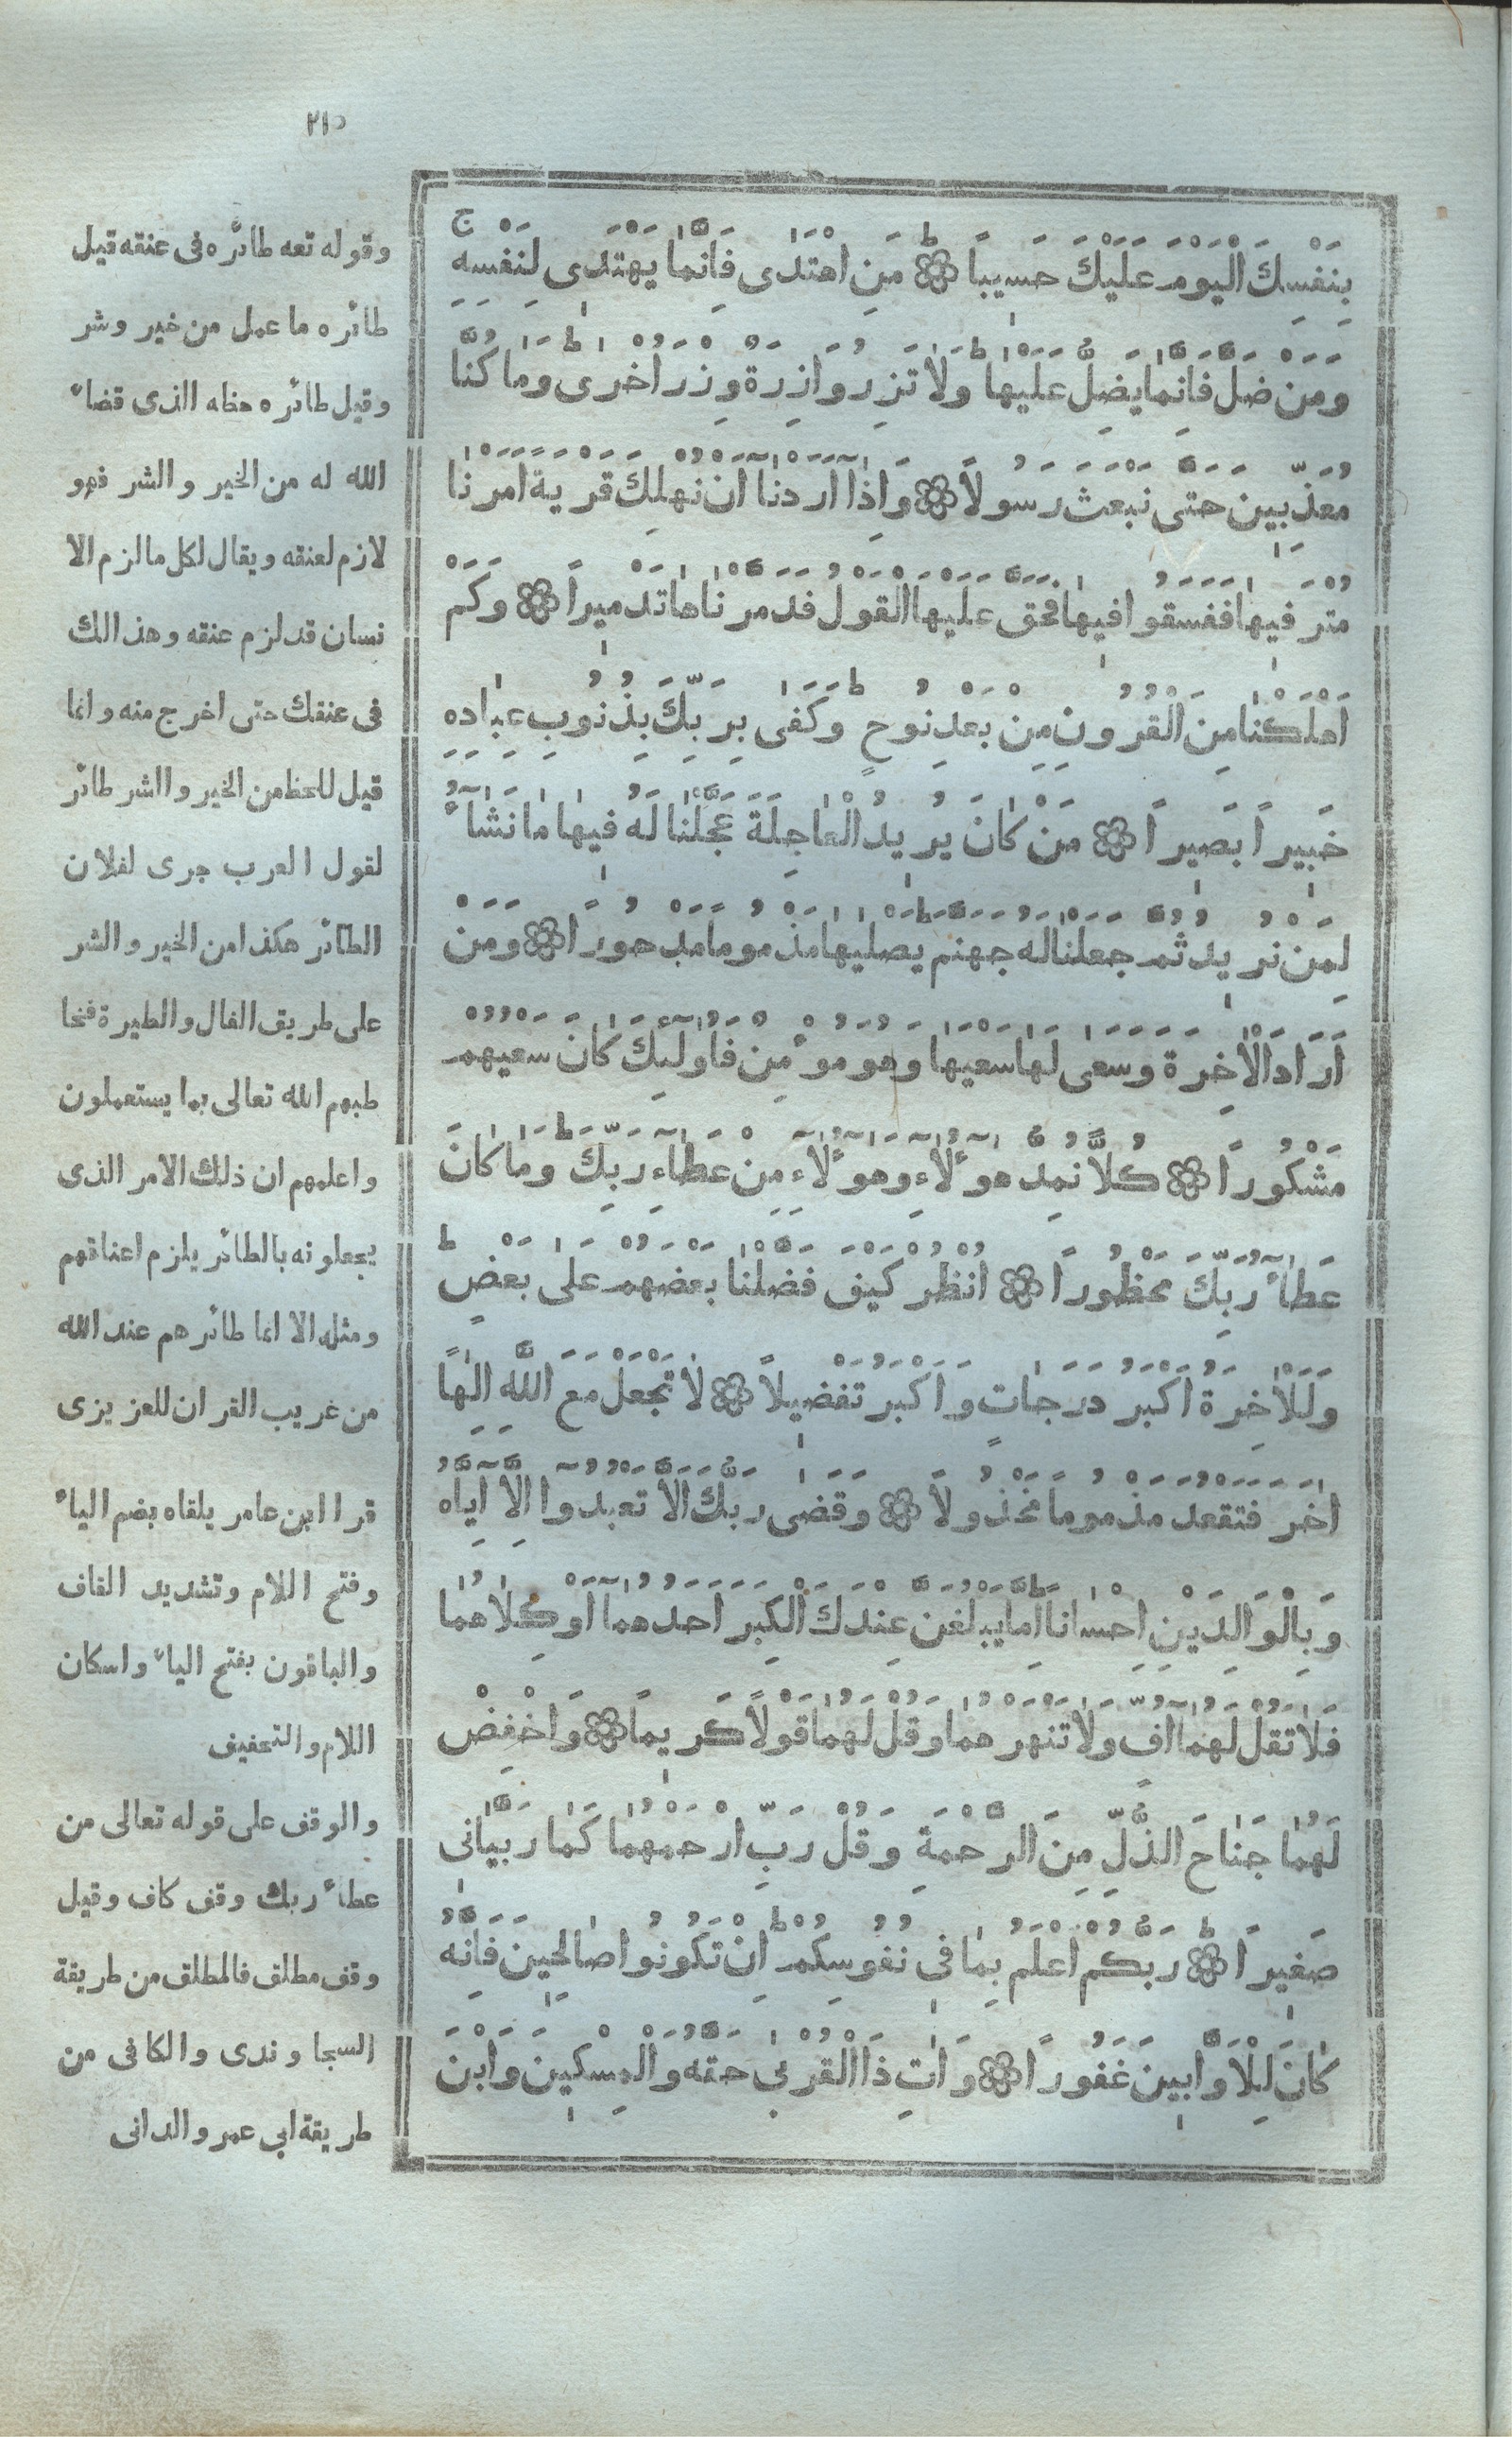 ٢١٥
بِنَفْسِكَ الْيَوْمَ عَلَيْكَ حَسِيبًا ۞ مَنِ اهْتَدٰى فَاِنَّمَا يَهْتَدِى لِنَفْسِهِ ج
وَمَنْ ضَلَّ فَاِنَّمَا يَضِلُّ عَلَيْهَا ط وَلَا تَزِرُ وَازِرَةٌ وِزْرَ اُخْرٰى ط وَمَا كُنَّا
مُعَذِّبِينَ حَتّٰى نَبْعَثَ رَسُولًا ۞ وَاِذَآ اَرَدْنَآ اَنْ نُهْلِكَ قَرْيَةً اَمَرْنَا
مُتْرَفِيهَا فَفَسَقُوا فِيهَا فَحَقَّ عَلَيْهَا الْقَوْلُ فَدَمَّرْنَاهَا تَدْمِيرًا ۞ وَكَمْ
اَهْلَكْنَا مِنَ الْقُرُونِ مِنْ بَعْدِ نُوحٍ ط وَكَفٰى بِرَبِّكَ بِذُنُوبِ عِبَادِهِ
خَبِيرًا بَصِيرًا ۞ مَنْ كَانَ يُرِيدُ الْعَاجِلَةَ عَجَّلْنَا لَهُ فِيهَا مَا نَشَآءُ
لِمَنْ نُرِيدُ ثُمَّ جَعَلْنَا لَهُ جَهَنَّمَ ط يَصْلٰيهَا مَذْمُومًا مَدْحُورًا ۞ وَمَنْ
اَرَادَ الْاٰخِرَةَ وَسَعٰى لَهَا سَعْيَهَا وَهُوَ مُؤْمِنٌ فَاُولٰٓئِكَ كَانَ سَعْيُهُمْ
مَشْكُورًا ۞ كُلًّا نُمِدُّ هٰٓؤُلَآءِ وَهٰٓؤُلَآءِ مِنْ عَطَآءِ رَبِّكَ ط وَمَا كَانَ
عَطَآءُ رَبِّكَ مَحْظُورًا ۞ اُنْظُرْ كَيْفَ فَضَّلْنَا بَعْضَهُمْ عَلٰى بَعْضٍ ط
وَلَلْاٰخِرَةُ اَكْبَرُ دَرَجَاتٍ وَاَكْبَرُ تَفْضِيلًا ۞ لَا تَجْعَلْ مَعَ اللّٰهِ اِلٰهًا
اٰخَرَ فَتَقْعُدَ مَذْمُومًا مَخْذُولًا ۞ وَقَضٰى رَبُّكَ اَلَّا تَعْبُدُوٓا اِلَّآ اِيَّاهُ
وَبِالْوَالِدَيْنِ اِحْسَانًا ط اِمَّا يَبْلُغَنَّ عِنْدَكَ الْكِبَرَ اَحَدُهُمَآ اَوْ كِلَاهُمَا
فَلَا تَقُلْ لَهُمَآ اُفٍّ وَلَا تَنْهَرْهُمَا وَقُلْ لَهُمَا قَوْلًا كَرِيمًا ۞ وَاخْفِضْ
لَهُمَا جَنَاحَ الذُّلِّ مِنَ الرَّحْمَةِ وَقُلْ رَبِّ ارْحَمْهُمَا كَمَا رَبَّيَانِى
صَغِيرًا ط ۞ رَبُّكُمْ اَعْلَمُ بِمَا فِى نُفُوسِكُمْ ط اِنْ تَكُونُوا صَالِحِينَ فَاِنَّهُ
كَانَ لِلْاَوَّابِينَ غَفُورًا ۞ وَاٰتِ ذَا الْقُرْبٰى حَقَّهُ وَالْمِسْكِينَ وَابْنَ
وقوله تعه طائره فى عنقه قيل
طائره ما عمل من خير وشر
وقيل طائره حظه الذى قضاء
الله له من الخير والشر فهو
لازم لعنقه ويقال لكل مالزم الا
نسان قد لزم عنقه وهذا لك
فى عنقك حتى اخرج منه وانما
قيل للحظ من الخير والشر طائر
لقول العرب جرى لفلان
الطائر هكذا من الخير والشر
على طريق الفال والطيرة فخا
طبهم الله تعالى بما يستعملون
واعلمهم ان ذلك الامر الذى
يجعلونه بالطائر يلزم اعناقهم
ومثله الا انما طائرهم عند الله
من غريب القران للعزيزى
قرا ابن عامر يلقاه بضم الياء
وفتح اللام وتشديد القاف
والباقون بفتح الياء واسكان
اللام والتخفيف
والوقف على قوله تعالى من
عطاء ربك وقف كاف وقيل
وقف مطلق فالمطلق من طريقة
السجاوندى والكافى من
طريقة ابى عمرو الدانى